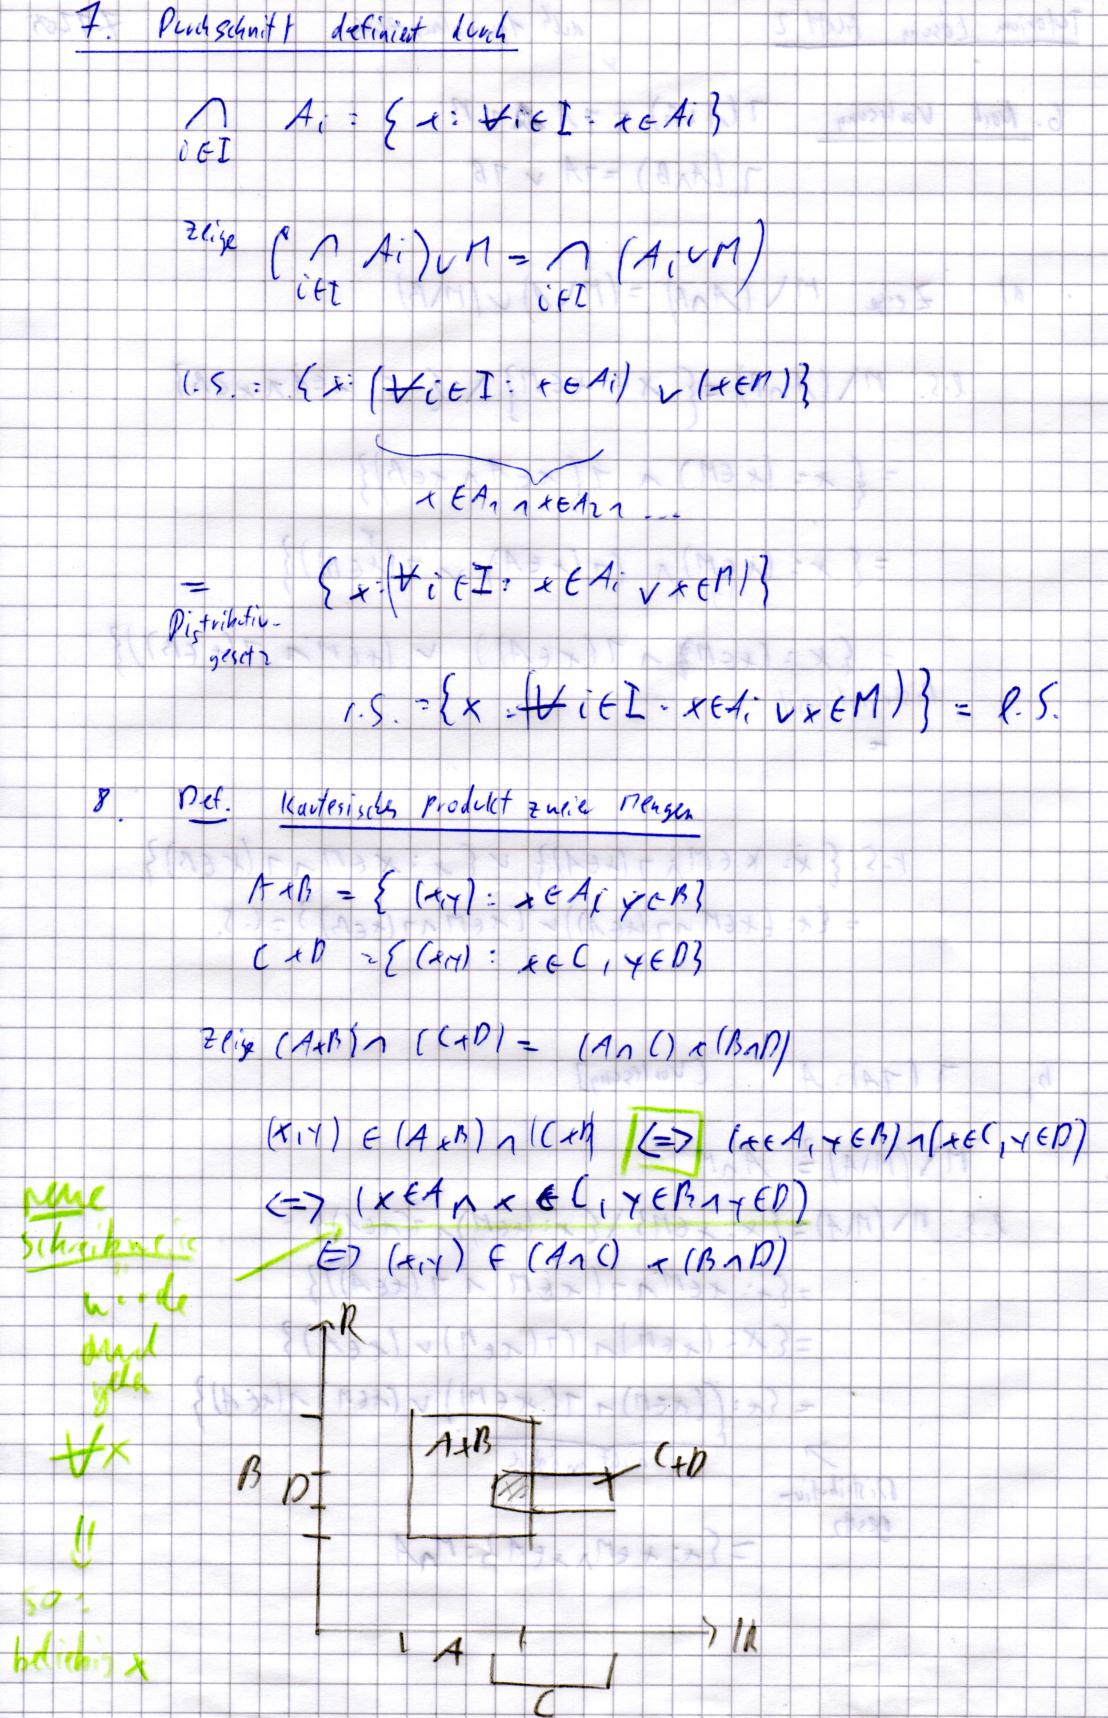 7. Durchschnitt definiert durch
⋂ Ai = { x: ∀i∈I: x∈Ai }
i∈I
Zeige (⋂ Ai) ∪ M = ⋂ (Ai ∪ M)
i∈I i∈I
l.S. = { x: (∀i∈I: x∈Ai) ∨ (x∈M) }
x∈A1 ∧ x∈A2 ∧ ...
= { x: (∀i∈I: x∈Ai ∨ x∈M) }
Distributiv-
gesetz
r.S. = { x: (∀i∈I: x∈Ai ∨ x∈M) } = l.S.
8. Def. Kartesisches Produkt zweier Mengen
A×B = { (x,y) : x∈A, y∈B }
C×D = { (x,y) : x∈C, y∈D }
Zeige (A×B) ∩ (C×D) = (A∩C) × (B∩D)
(x,y) ∈ (A×B) ∩ (C×D) ⇔ (x∈A, y∈B) ∧ (x∈C, y∈D)
⇔ (x∈A ∧ x∈C, y∈B ∧ y∈D)
⇔ (x,y) ∈ (A∩C) × (B∩D)
neue
Schreibweise
würde
auch
gehn
∀x
⇓
so:
beliebig x
R
A×B
C×D
B D
ℝ
A
C